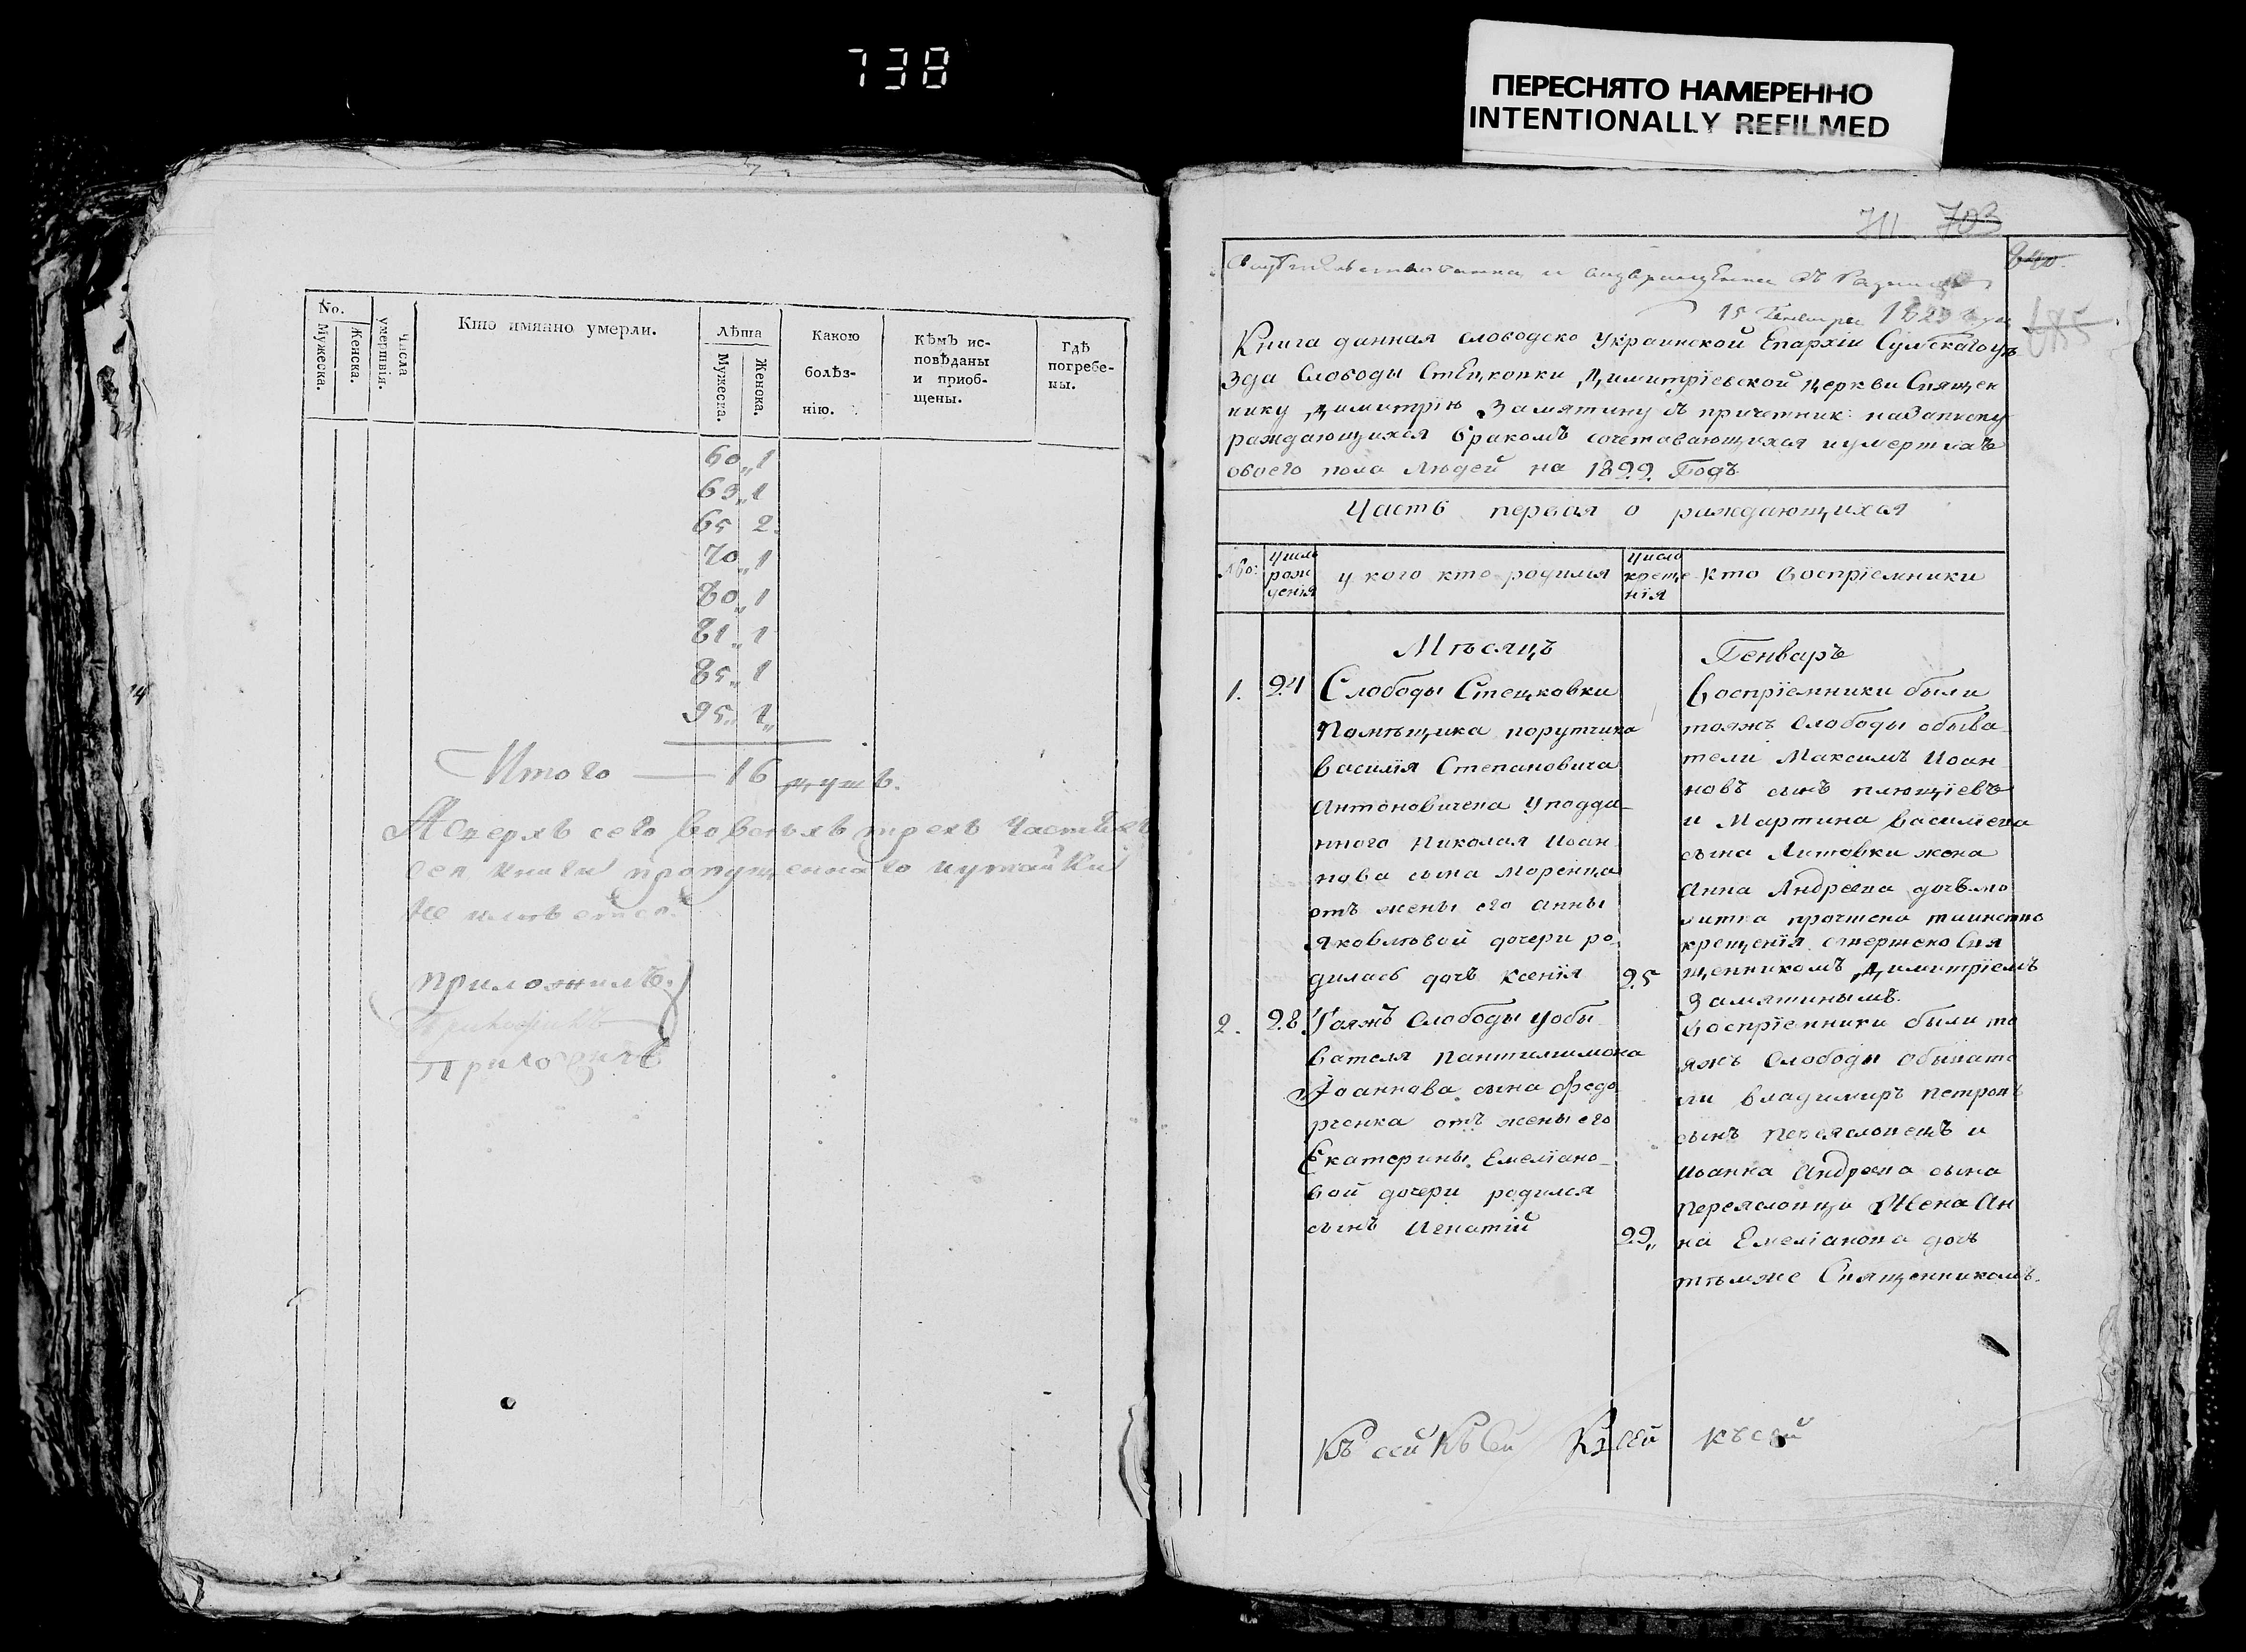 738
ПЕРЕСНЯТО НАМЕРЕННО
INTENTIONALLY REFILMED
No.
Мужеска.
Женска.
Числа умертвія.
Кто имянно умерли.
Лѣта
Мужеска.
Женска.
Какою болѣз-
нію.
Кѣмъ ис-
повѣданы
и приоб-
щены.
Гдѣ
погребе-
ны.
60„ 1
63„ 1
65 2.
70„ 1
80„ 1
81„ 1
85„ 1
95„ 1„
Итого — 16 душъ.
А сверхъ сего во всѣхъ трехъ частяхъ
сея книги пропущеннаго и утайки
не имѣется
приложилъ.
711 703
15 Генваря 1823 года
Книга данная слободско Украинской Епархіи Сумскаго уѣ
зда Слободы Стецковки Димитріевской церкви Священ
нику Димитрію Замятину съ причетник: на записку
раждающихся бракомъ сочетавающихся и умертихъ
обоего пола людей на 1822 Годъ
Часть первая о раждающихся
№:
число
рож
денія
у кого кто родился
число
креще
нія
кто воспріемники
Мѣсяцъ Генварь
1. 24 Слободы Стецковки
Помѣщика порутчика
Василія Степановича
Антоновичева у подда-
ннаго Николая Иоан
нова сына Моренца
отъ жены его Анны
Яковлевой дочери ро-
дилась дочь Ксенія
25
Воспріемники были
тояжъ слободы обыва
тели Максимъ Иоан
новъ сынъ
и Мартина Василиева
сына Литовки жена
Анна Андреева дочь мо
литва прочтена таинство
крещенія совершено Свя
щенникомъ Димитріемъ
Замятинымъ.
2. 28. Тояжъ слободы у обы
вателя Пантилимона
Иоаннова сына Федо
рченка отъ жены его
Екатерины Емеліано-
вой дочери родился
сынъ Игнатій
29„
Воспріемники были то
яжъ слободы обывате
ли Владимиръ Петровъ
сынъ Переясловецъ и
Иоанна Андреева сына
Переясловца Жена Ан
на Емеліанова дочь
тѣмже Священникомъ.
Къ сей Къ сей Къ сей къ сей